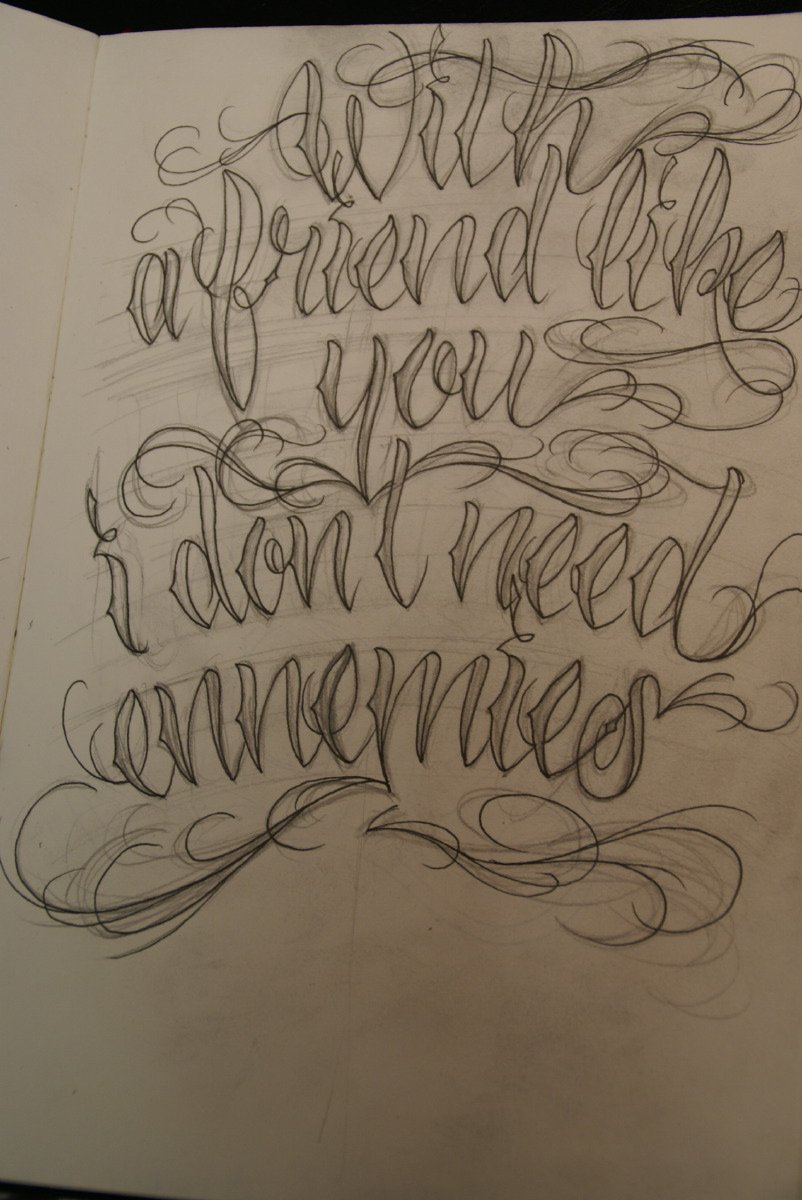 with
a friend like
you
i don't need
ennemies